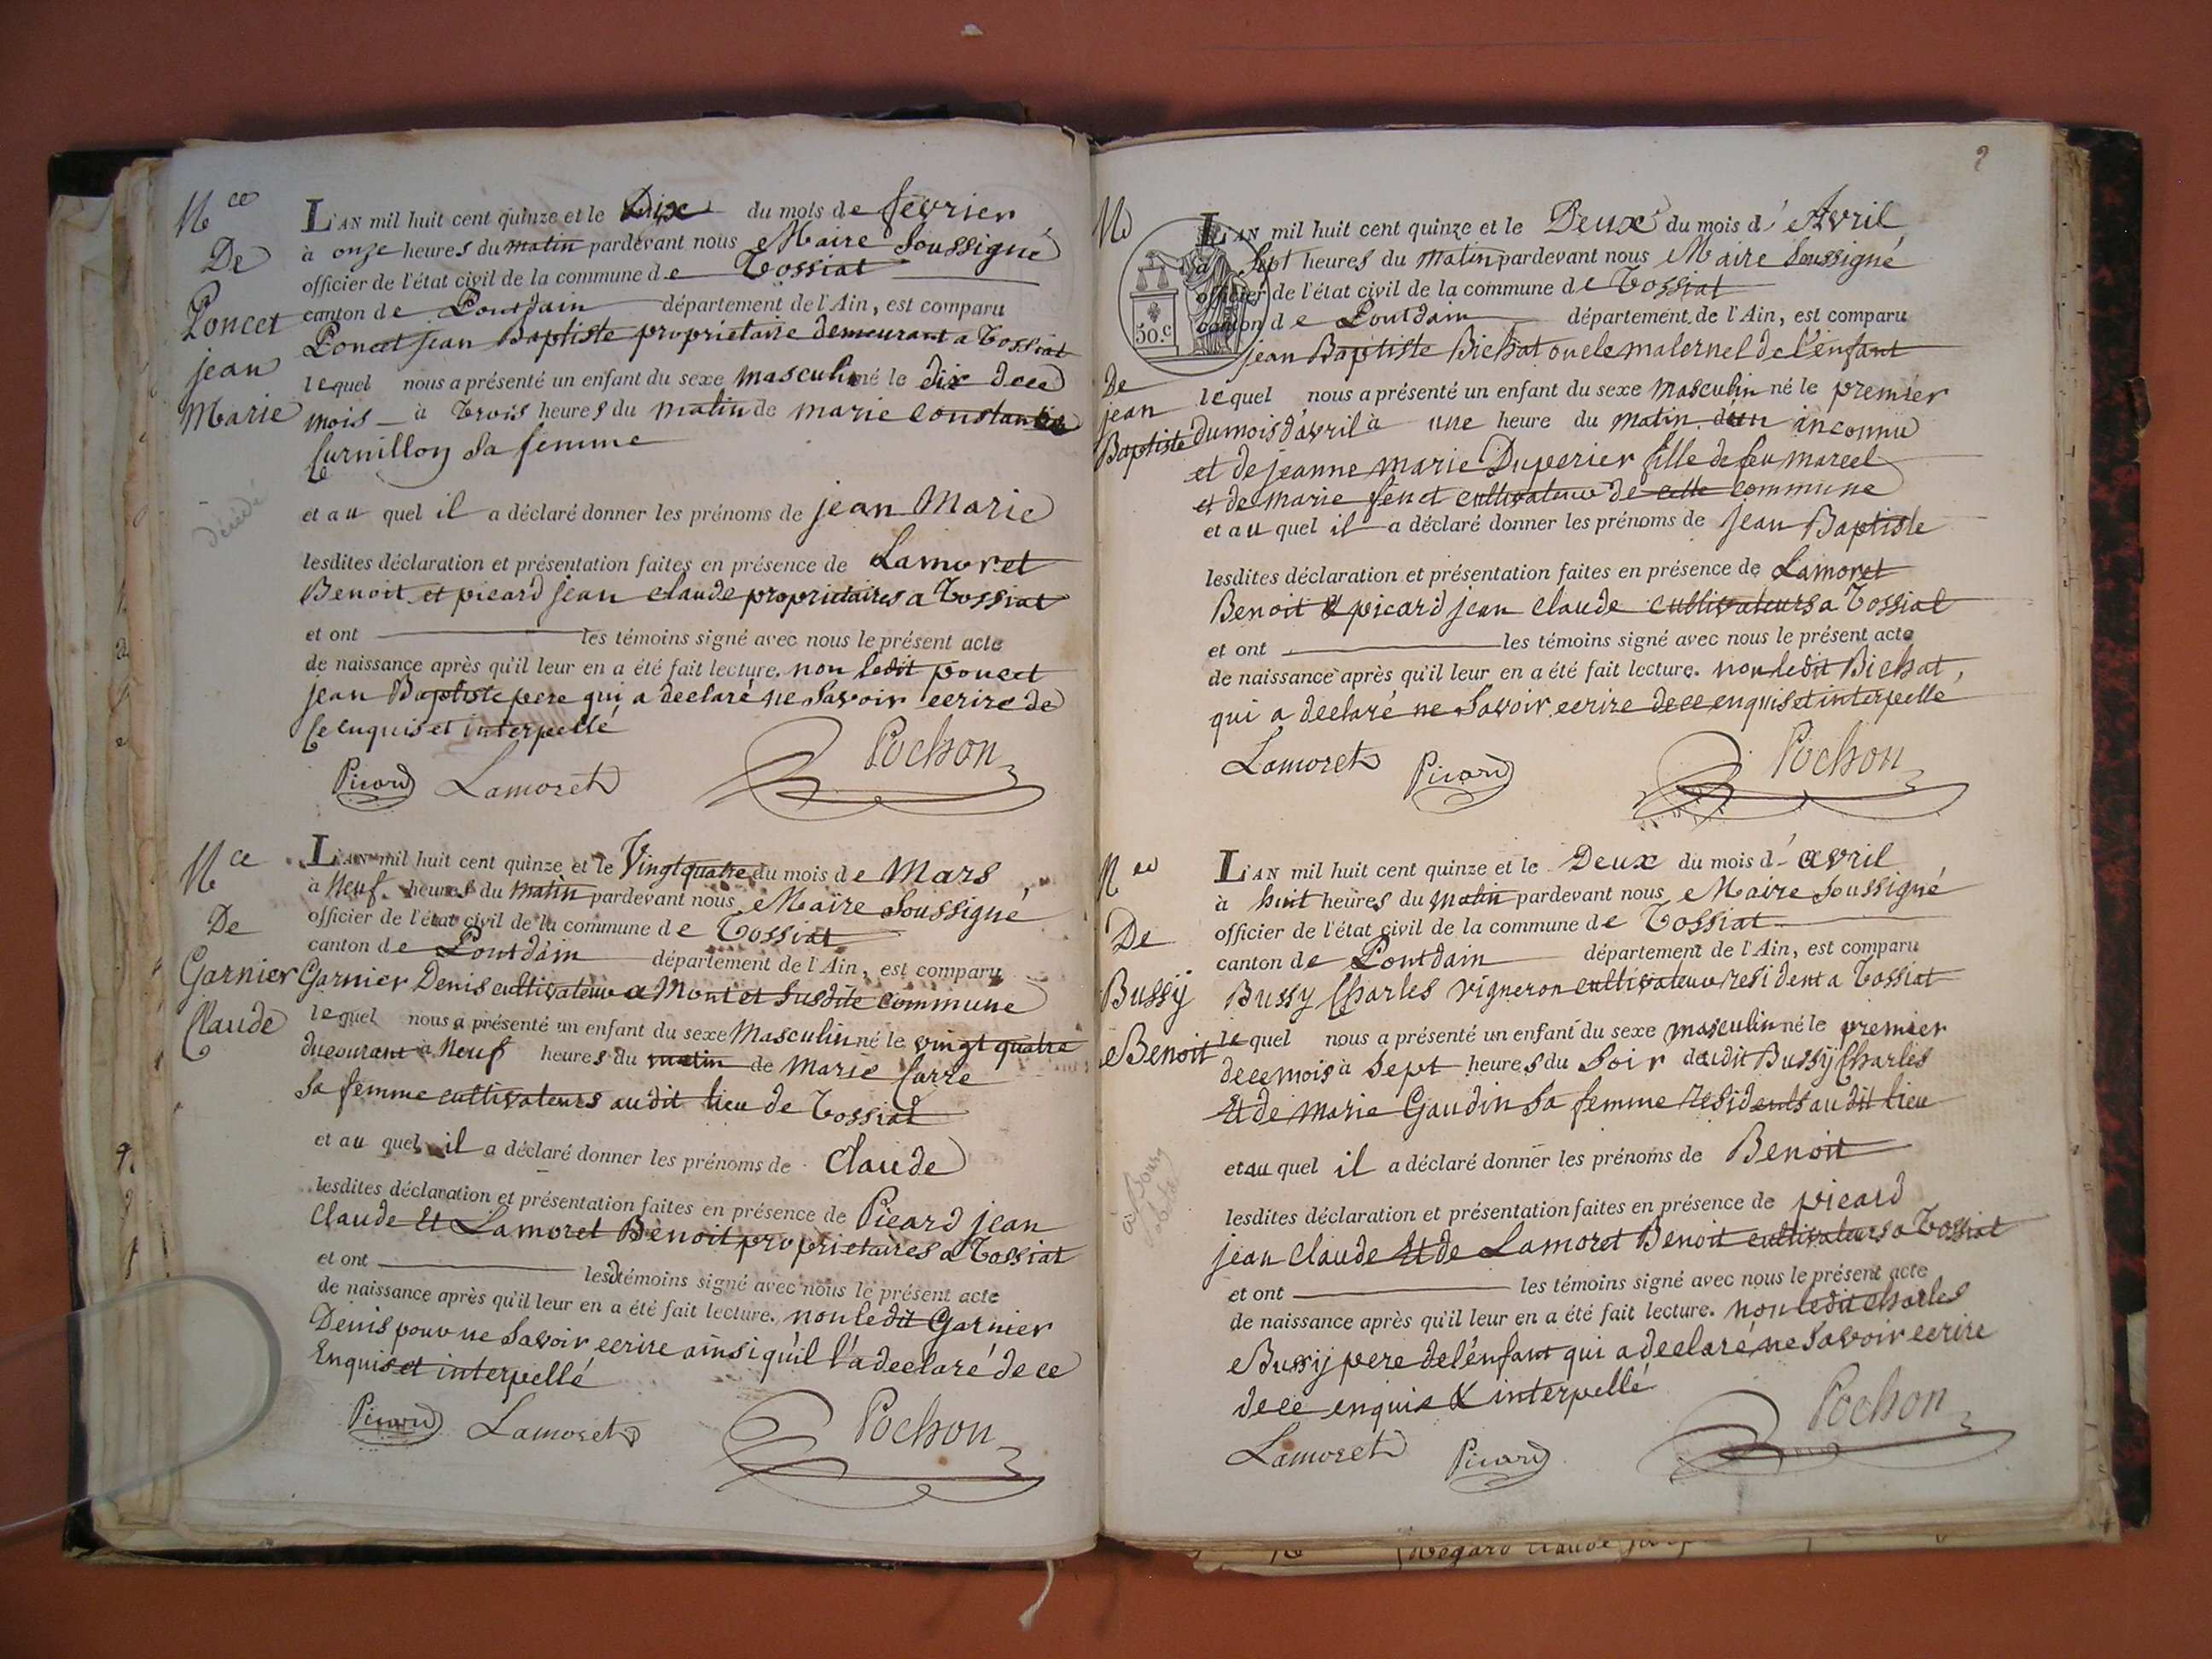 Nce
De
Poncet
jean
Marie
L'AN mil huit cent quinze et le Dix du mois de fevrier
à onze heures du matin pardevant nous Maire Soussigné
officier de l'état civil de la commune de Tossiat
canton de Pontdain département de l'Ain, est comparu
Poncet jean Baptiste proprietaire demeurant a Tossiat
lequel nous a présenté un enfant du sexe masculin né le dix dece
mois à trois heures du matin de marie
Curnillon sa femme
décédé
et au quel il a déclaré donner les prénoms de jean Marie
lesdites déclaration et présentation faites en présence de Lamoret
Benoit et picard jean claude proprietaires a Tossiat
et ont les témoins signé avec nous le présent acte
de naissance après qu'il leur en a été fait lecture. non ledit poncet
jean Baptiste pere qui a declaré ne Savoir ecrire de
Ce enquis et interpellé
Picard Lamoret Pochon
Nce
De
Garnier
Claude
L'AN mil huit cent quinze et le Vingt quatre du mois de Mars
à Neuf heures du matin pardevant nous Maire Soussigné
officier de l'état civil de la commune de Tossiat
canton de Pontdain département de l'Ain, est comparu
Garnier Denis cultivateur a Montet Susdite commune
lequel nous a présenté un enfant du sexe Masculin né le vingt quatre
ducourant à Neuf heures du matin de Marie Carre
Sa femme cultivateurs audit lieu de Tossiat
et au quel il a déclaré donner les prénoms de Claude
lesdites déclaration et présentation faites en présence de Picard jean
Claude Et Lamoret Benoit proprietaires a Tossiat
et ont lesdt témoins signé avec nous le présent acte
de naissance après qu'il leur en a été fait lecture. non ledit Garnier
Denis pour ne Savoir ecrire ainsi qu'il l'a declaré de ce
Enquis et interpellé
Picard Lamoret Pochon
2
N
50.c
De
jean
Baptiste
L'AN mil huit cent quinze et le Deux du mois d'Avril
à Sept heures du matin pardevant nous Maire Soussigné
officier de l'état civil de la commune de Tossiat
canton de Pontdain département de l'Ain, est comparu
jean Baptiste Bichat oncle maternel de l'enfant
lequel nous a présenté un enfant du sexe masculin né le premier
Dumois d'avril à une heure du matin d'un inconnu
et de jeanne marie Duperier fille de feu marcel
et de marie fenet cultivateur de cette commune
et au quel il a déclaré donner les prénoms de jean Baptiste
lesdites déclaration et présentation faites en présence de Lamoret
Benoit & picard jean claude cultivateurs a Tossiat
et ont les témoins signé avec nous le présent acte
de naissance après qu'il leur en a été fait lecture. non ledit Bichat,
qui a declaré ne Savoir ecrire dece enquis et interpellé
Lamoret Picard Pochon
Nce
De
Bussÿ
Benoit
L'AN mil huit cent quinze et le Deux du mois d'avril
à huit heures du matin pardevant nous Maire Soussigné
officier de l'état civil de la commune de Tossiat
canton de Pontdain département de l'Ain, est comparu
Bussy Charles vigneron cultivateur resident a Tossiat
lequel nous a présenté un enfant du sexe masculin né le premier
dece mois à Sept heures du Soir dudit Bussÿ Charles
Et de Marie Gaudin Sa femme residents audit lieu
à Bourg
et au quel il a déclaré donner les prénoms de Benoit
lesdites déclaration et présentation faites en présence de picard
jean claude Et de Lamoret Benoit cultivateurs a Tossiat
et ont les témoins signé avec nous le présent acte
de naissance après qu'il leur en a été fait lecture. non ledit charles
Bussij pere del'enfant qui a declaré ne Savoir ecrire
dece enquis & interpellé
Lamoret Picard Pochon